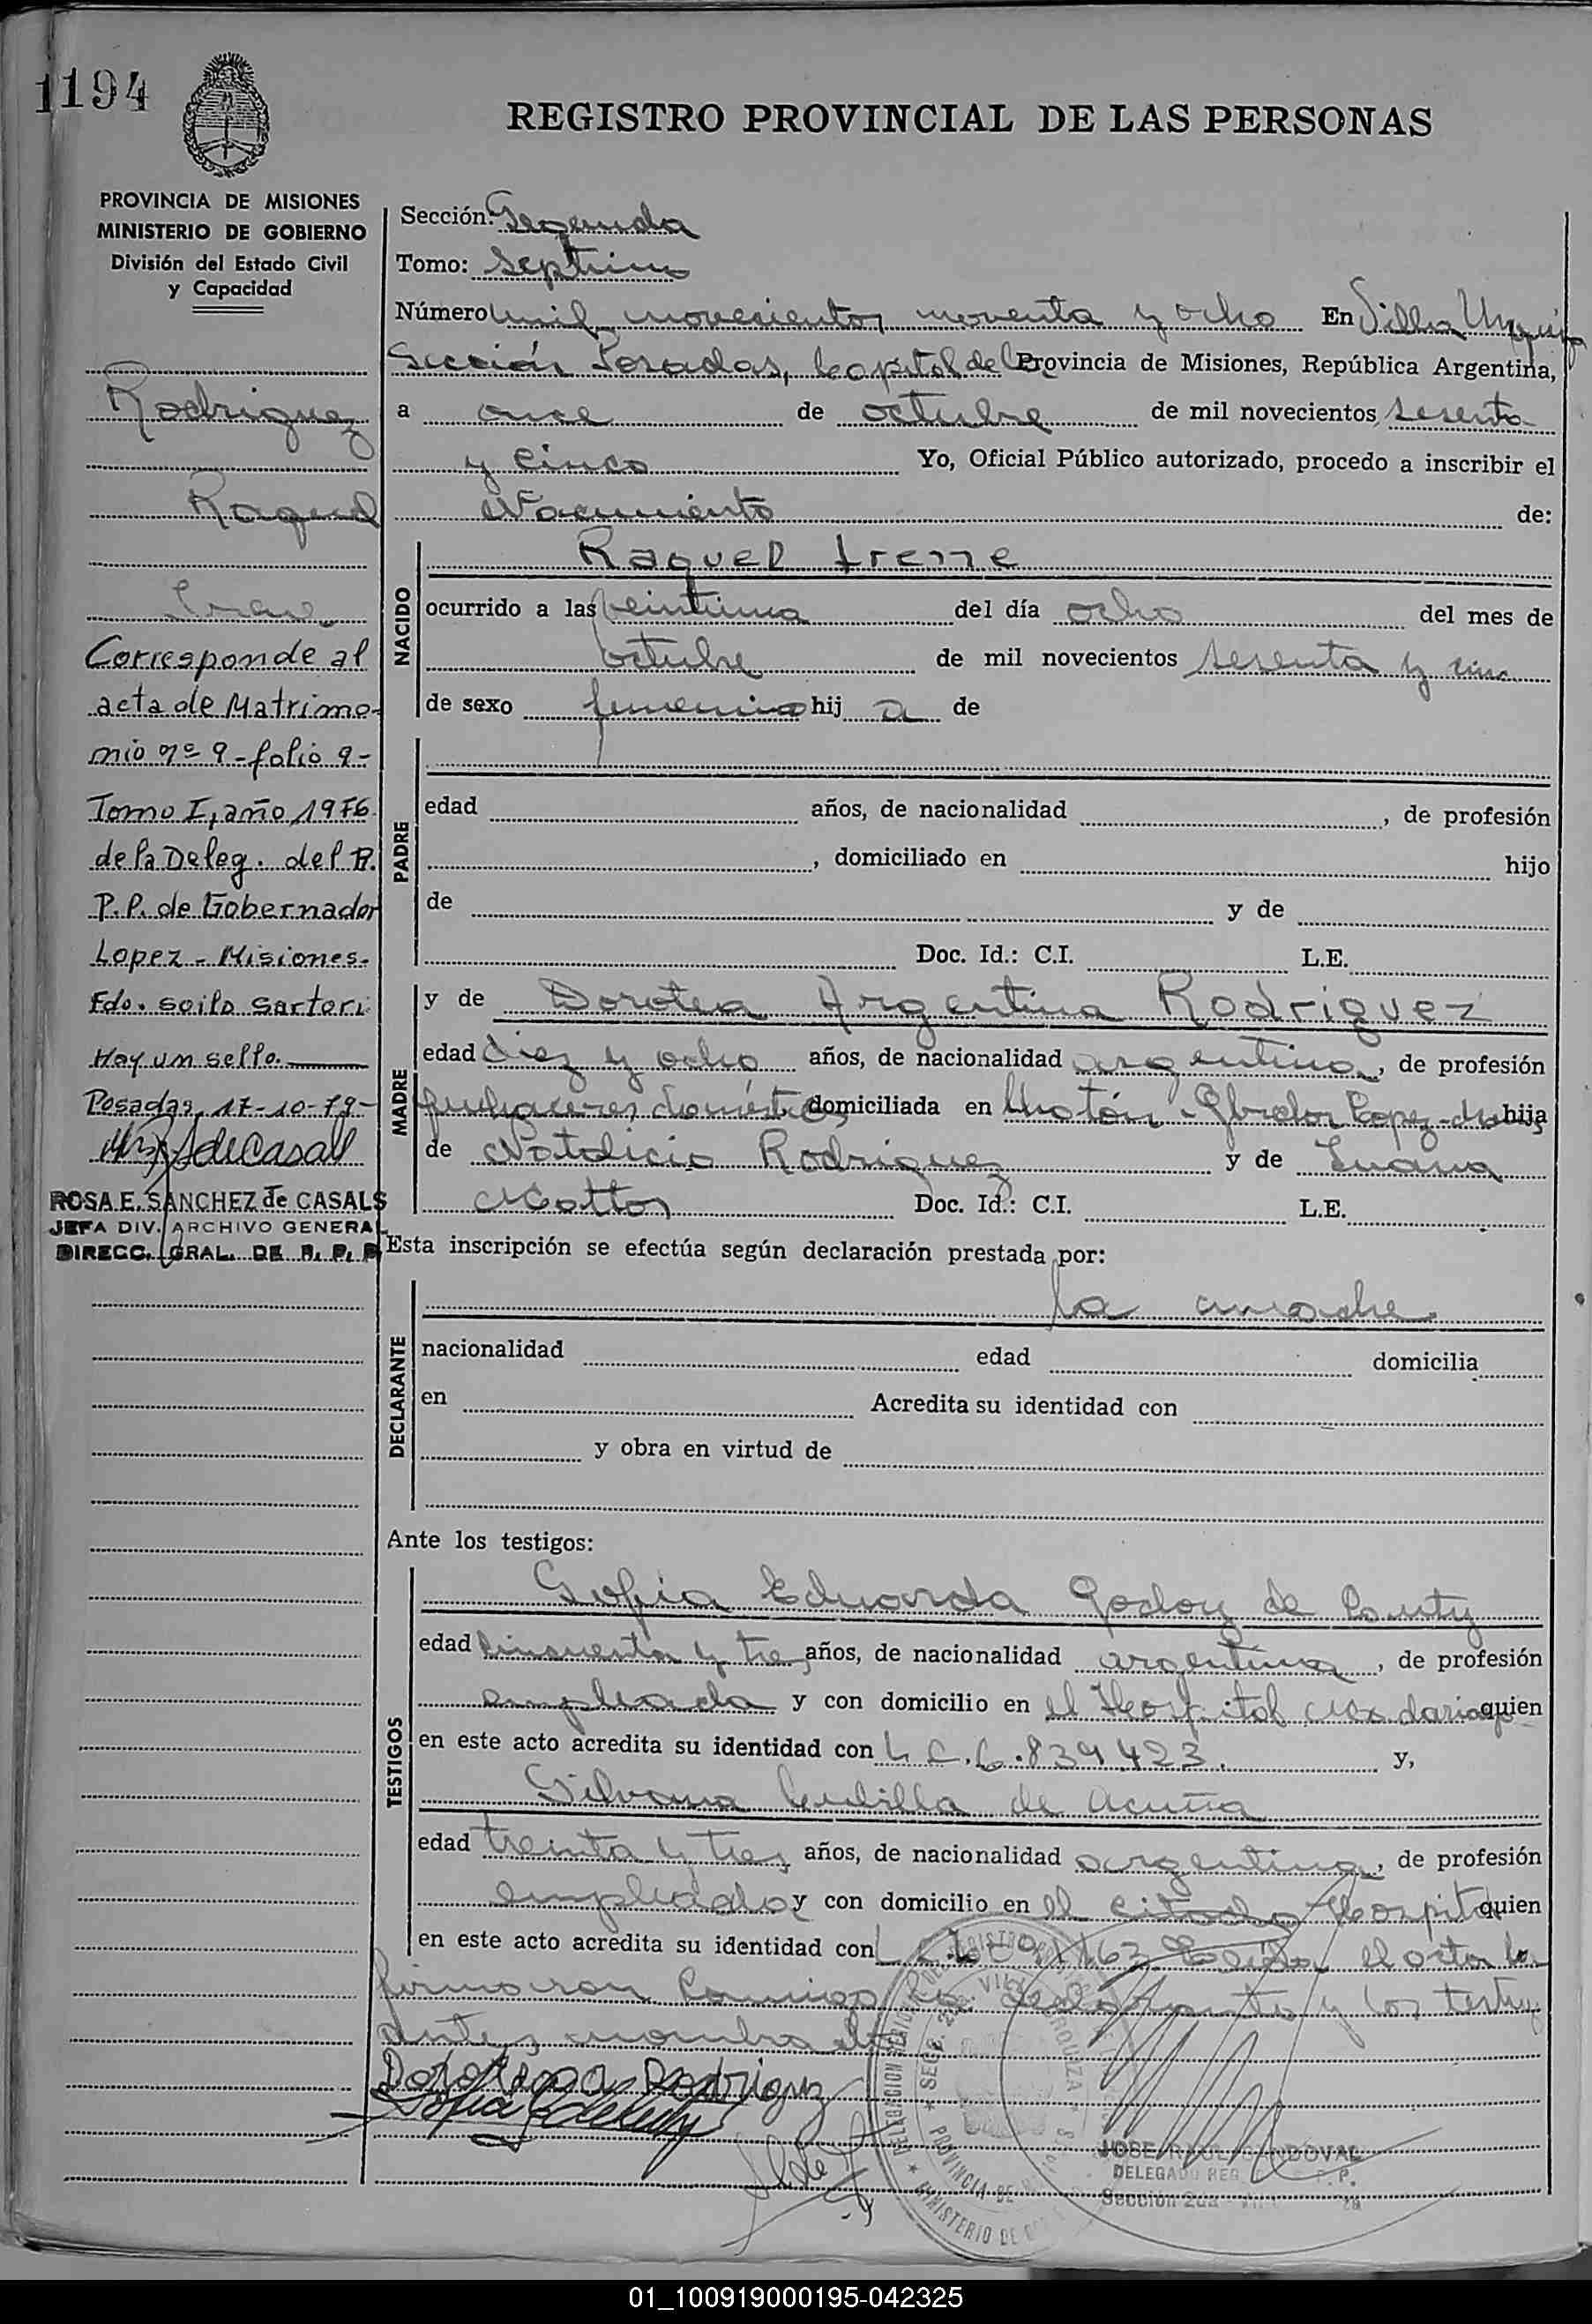 1194
REGISTRO PROVINCIAL DE LAS PERSONAS
PROVINCIA DE MISIONES
MINISTERIO DE GOBIERNO
División del Estado Civil
y Capacidad
Rodriguez
Raquel
Irene
Corresponde al
acta de Matrimo-
nio nº 9 - folio 9 -
Tomo I, año 1976
de la Deleg. del R.
P.P. de Gobernador
Lopez - Misiones.
Fdo. Soilo Sartori
Hay un sello.
Posadas, 17-10-79-
ROSA E. SANCHEZ de CASALS
JEFA DIV. ARCHIVO GENERAL
DIRECC. GRAL. DE R. P. P.
Sección: Segunda
Tomo: Septimo
Número mil novecientos noventa y ocho En Villa Urquiza
Sección Posadas, Capital de la Provincia de Misiones, República Argentina,
a once de octubre de mil novecientos sesenta
y cinco Yo, Oficial Público autorizado, procedo a inscribir el
Nacimiento de:
NACIDO
Raquel Irene
ocurrido a las veintiuna del día ocho del mes de
octubre de mil novecientos sesenta y cinco
de sexo femenino hij a de
PADRE
edad años, de nacionalidad , de profesión
, domiciliado en hijo
de y de
Doc. Id.: C.I. L.E.
MADRE
y de Dorotea Argentina Rodriguez
edad diez y ocho años, de nacionalidad argentina, de profesión
quehaceres domésticos domiciliada en Gbrdor Lopez hija
de Natalicio Rodriguez y de Juana
Mottos Doc. Id.: C.I. L.E.
Esta inscripción se efectúa según declaración prestada por:
DECLARANTE
la madre
nacionalidad edad domicilia
en Acredita su identidad con
y obra en virtud de
Ante los testigos:
TESTIGOS
Sofia Eduarda Godoy de
edad cincuenta y tres años, de nacionalidad argentina, de profesión
empleada y con domicilio en el Hospital Madariaga quien
en este acto acredita su identidad con L.C. 6.839.423. y,
Silvana Cubilla de Acuña
edad treinta y tres años, de nacionalidad argentina, de profesión
empleada y con domicilio en el citado Hospital quien
en este acto acredita su identidad con L.C. Leída el acta la
firmaron conmigo la declarante y los testigos
antes nombrados
Rodriguez
JOSE RAUL SANDOVAL
DELEGADO REG. P.
Sección 2da
01_100919000195-042325